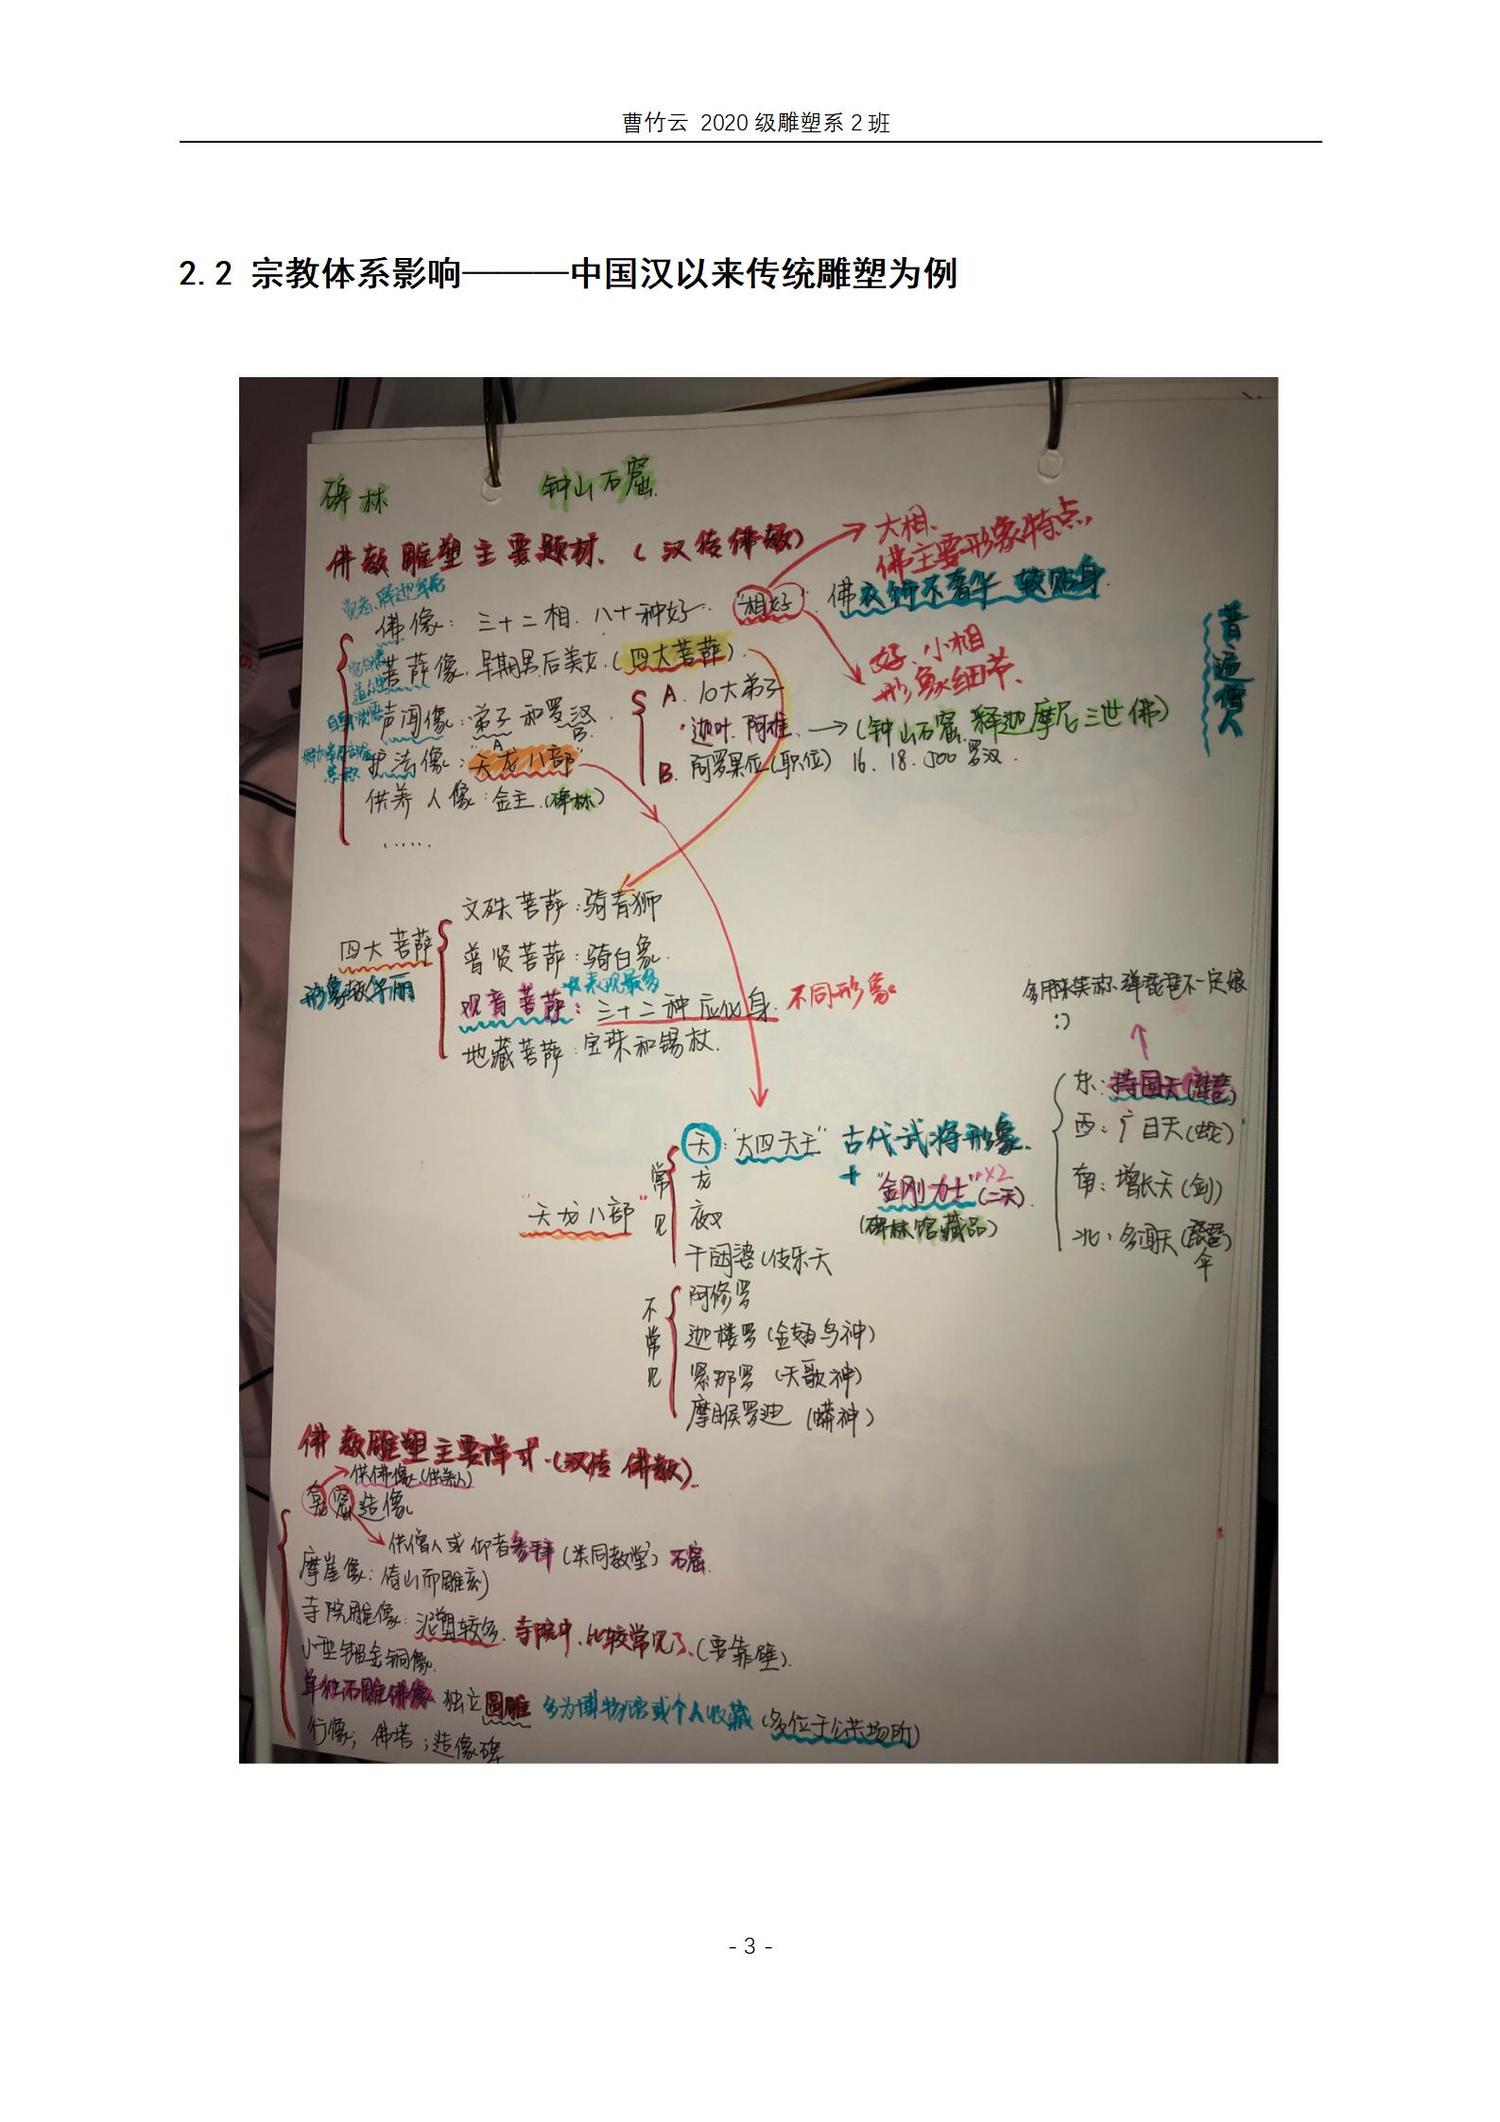 曹竹云 2020 级雕塑系 2 班
2.2 宗教体系影响———中国汉以来传统雕塑为例
碑林 钟山石窟
佛教雕塑主要题材、(汉传佛教)
大相、
佛主要形象特点,
觉者、释迦牟尼
佛像:三十二相、八十种好
"相好"
佛衣饰不奢华 较贴身
菩萨像、早期男后美女、(四大菩萨)
好、小相
形象细节、
声闻像:弟子和罗汉
A B
A. 10大弟子
迦叶、阿难、→(钟山石窟 释迦摩尼三世佛)
护法像:"天龙八部"
B. 阿罗果位(职位) 16、18、500罗汉.
供养人像:金主、(碑林)
……
普遍僧人
四大菩萨
形象较华丽
文殊菩萨:骑青狮
普贤菩萨:骑白象
表现最多
观音菩萨:三十二种应化身 不同形象
地藏菩萨:宝珠和锡杖.
弹琵琶不一定娘
:)
东:持国天(琵琶)
西:广目天(蛇)
南:增长天(剑)
北:多闻天
伞
"天龙八部"
常见
天:"大四天王" 古代武将形象
龙 + "金刚力士"×2(二天)
夜叉 (碑林馆藏品)
干闼婆(伎乐天
不常见
阿修罗
迦楼罗(金翅鸟神)
紧那罗(天歌神)
摩睺罗迦(蟒神)
佛教雕塑主要样式·(汉传佛教)
供佛像(供养人)
龛窟造像
供僧人或仰者参拜(类同教堂)石窟
摩崖像:倚山而雕刻
寺院雕像:泥塑较多、寺院中、比较常见了、(要靠壁).
小型鎏金铜像
单独石雕佛像 独立圆雕 多为博物馆或个人收藏(多位于公共场所)
行像;佛塔;造像碑
- 3 -